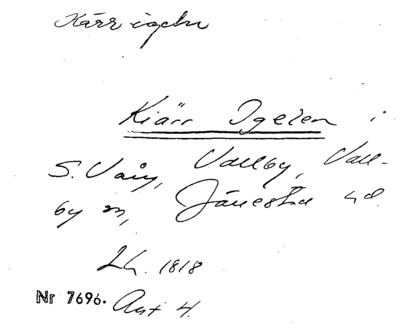 Kärrigeln
Kiärr Igelen i
S. Våij, Vallby, Vall-
by sn, Jäneåkers hd.
Lh. 1818
Nr 7696. Akt 4.